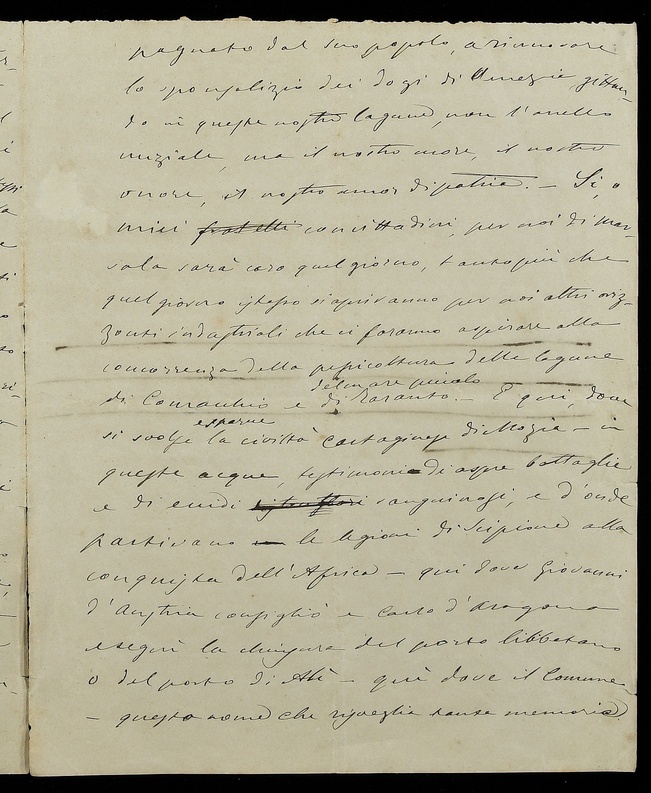 pagnato dal suo popolo, a rinnovare
lo sponsalizio dei dogi di Venezia, gittan-
do in queste nostre lagune, non l'anello
nuziale, ma il nostro cuore, il nostro
onore, il nostro amor di patria. — Sì, o
amici fratelli concittadini, per noi di Mar-
sala sarà caro quel giorno, tanto più che
quel giorno stesso si apriranno per noi altri oriz-
zonti industriali che ci faranno aspirare alla
concorrenza della pescicoltura delle lagune
del mare piccolo
di Comacchio e di Taranto. — E qui, dove
e sparve
si svolse la civiltà cartaginese di Mozia — in
queste acque, testimoni di aspre battaglie
e di eccidi sanguinosi, e d'onde
partivano le legioni di Scipione alla
conquista dell'Africa — qui dove Giovanni
d'Austria consigliò e Carlo d'Aragona
eseguì la chiusura del porto libbetano
o del porto di Alì — quì dove il Comune
— questo nome che risveglia tante memorie